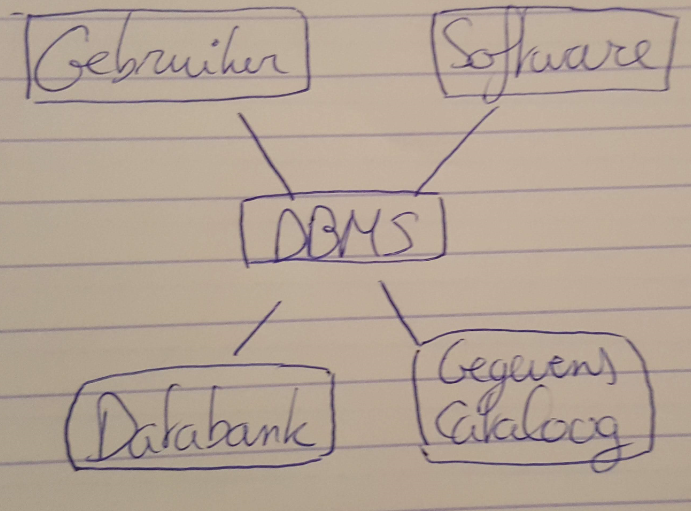 Gebruiker
Software
DBMS
Databank
Gegevens
Cataloog